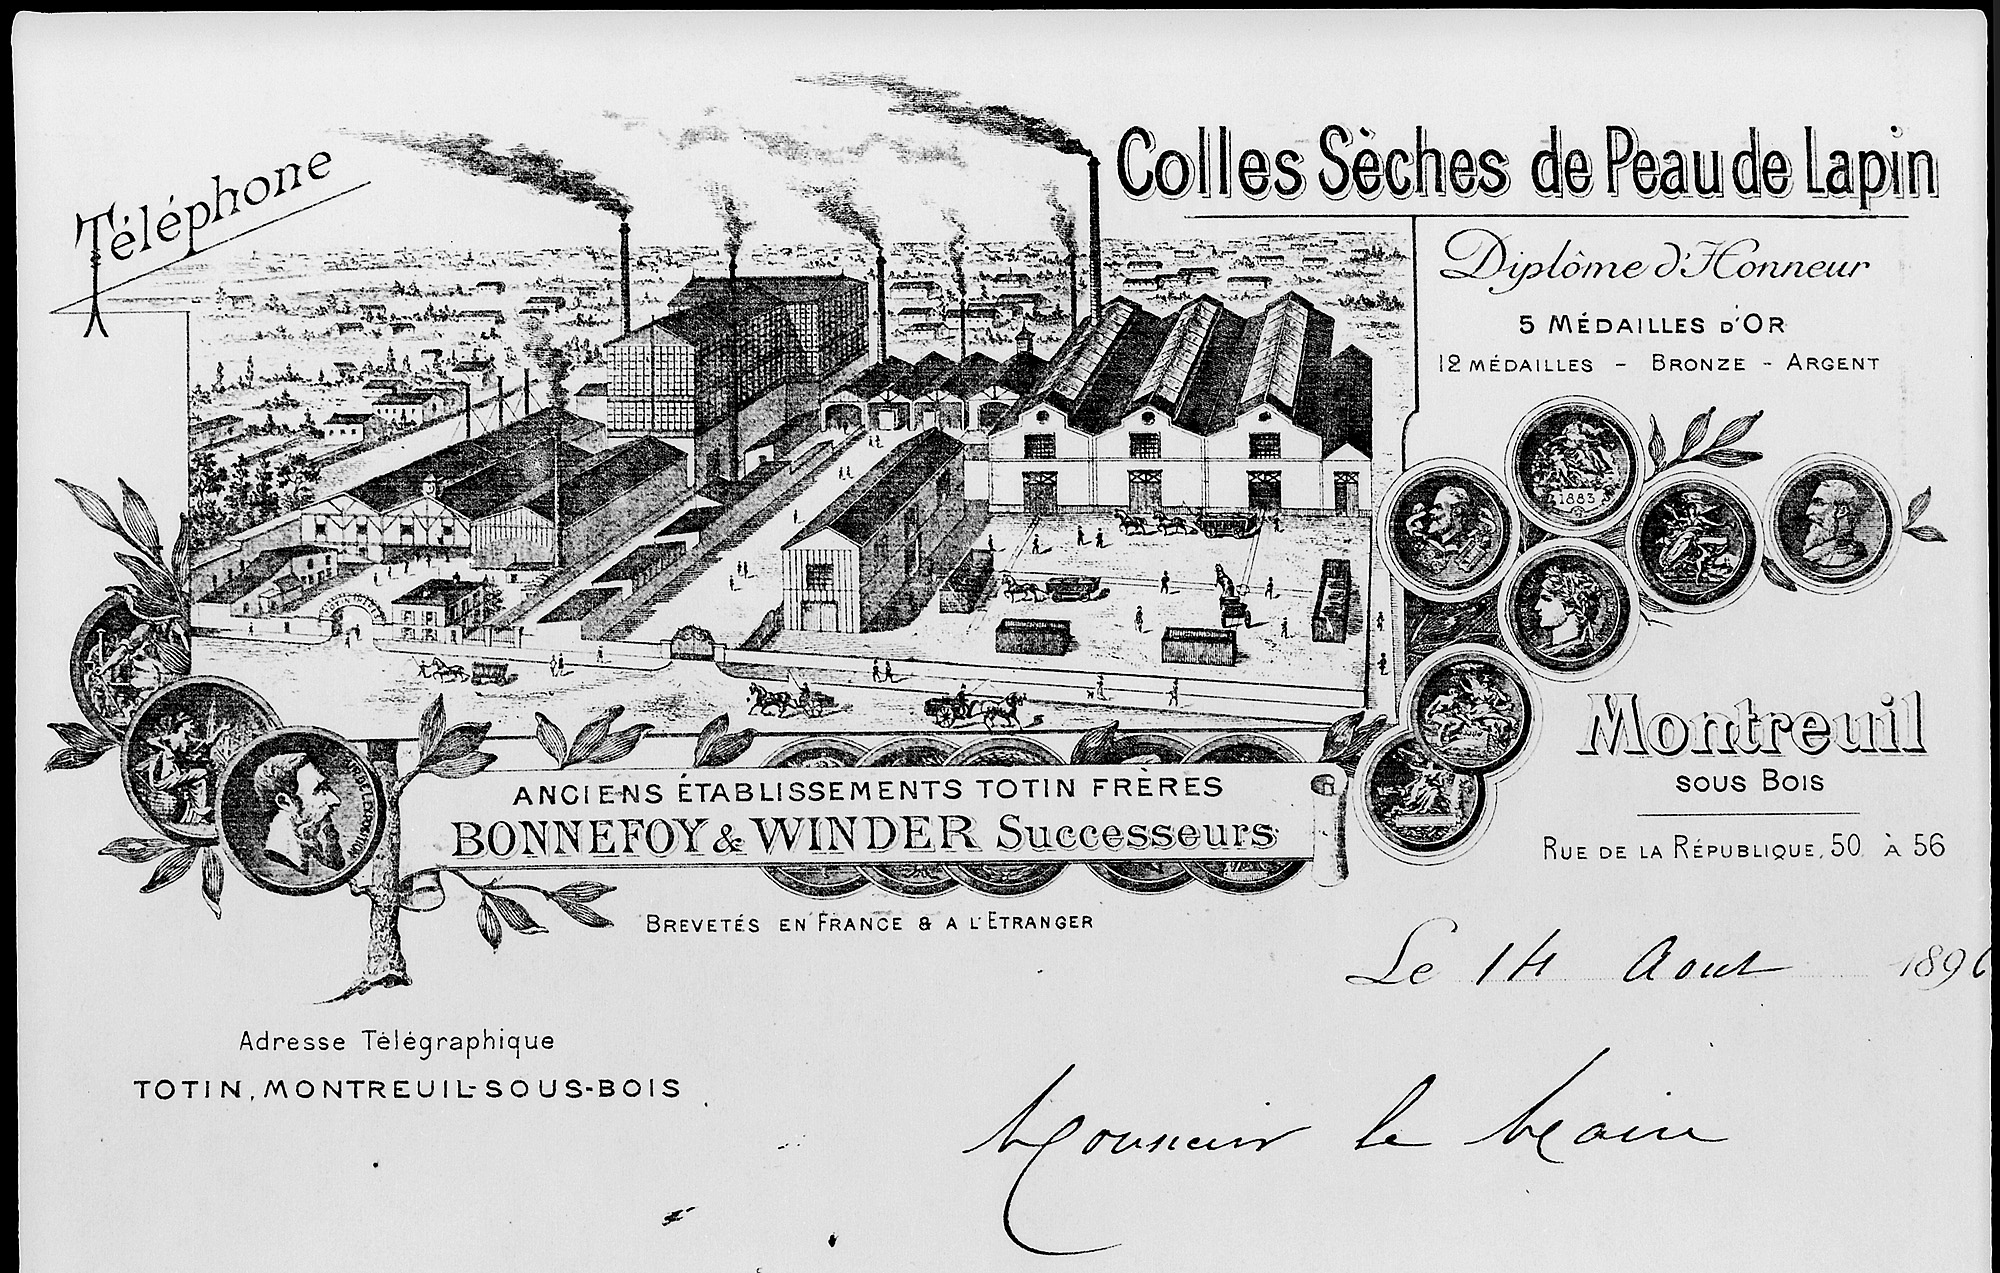 Téléphone
Colles Sèches de Peau de Lapin
Diplôme d'Honneur
5 MÉDAILLES D'OR
12 MÉDAILLES - BRONZE - ARGENT
1883
Montreuil
SOUS BOIS
RUE DE LA RÉPUBLIQUE, 50 À 56
ANCIENS ÉTABLISSEMENTS TOTIN FRÈRES
BONNEFOY & WINDER Successeurs
BREVETÉS EN FRANCE & A L'ETRANGER
Le 14 Aout 1896
Adresse Télégraphique
TOTIN, MONTREUIL-SOUS-BOIS
Monsieur le Maire